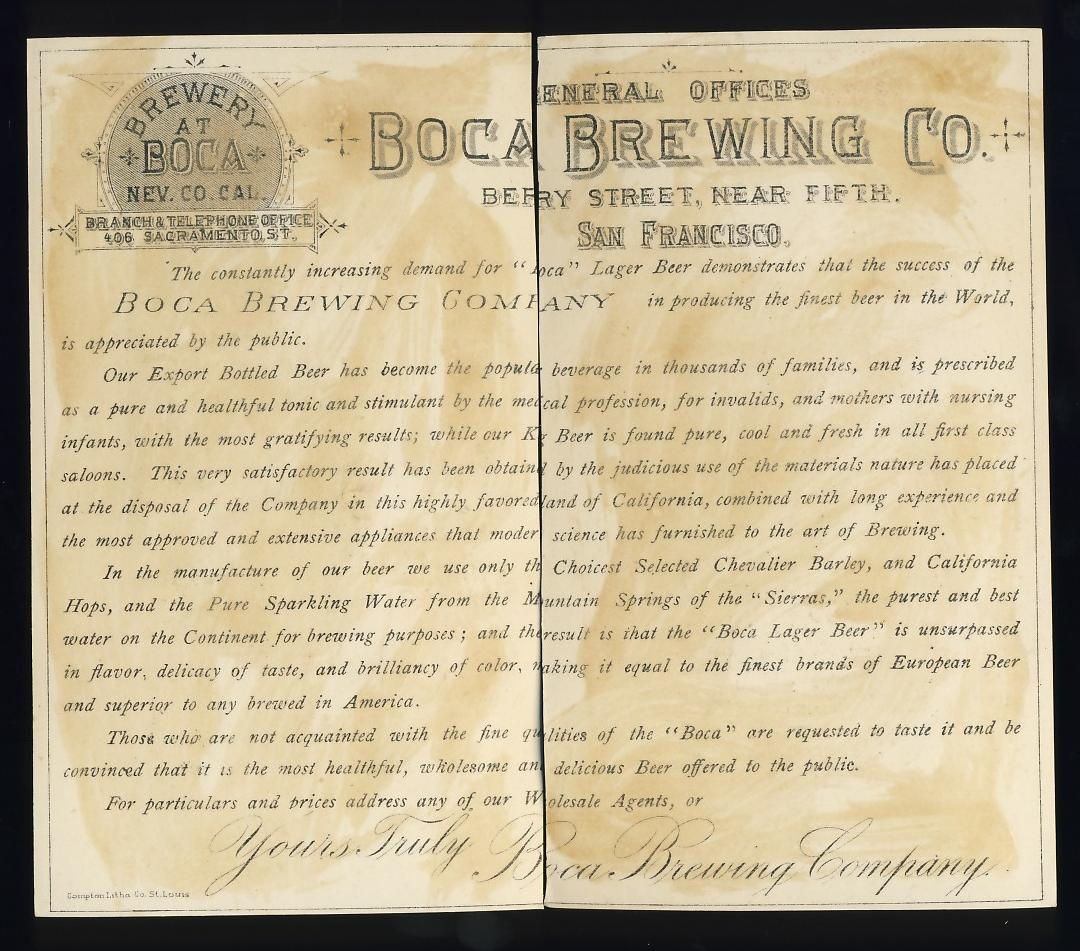 BREWERY
AT
BOCA
NEV. CO. CAL.
BRANCH & TELEPHONE OFFICE
406 SACRAMENTO ST.
GENERAL OFFICES
BOCA BREWING CO.
BERRY STREET, NEAR FIFTH.
SAN FRANCISCO.
The constantly increasing demand for "Boca" Lager Beer demonstrates that the success of the
BOCA BREWING COMPANY in producing the finest beer in the World,
is appreciated by the public.
Our Export Bottled Beer has become the popula beverage in thousands of families, and is prescribed
as a pure and healthful tonic and stimulant by the medcal profession, for invalids, and mothers with nursing
infants, with the most gratifying results; while our Kg Beer is found pure, cool and fresh in all first class
saloons. This very satisfactory result has been obtaind by the judicious use of the materials nature has placed
at the disposal of the Company in this highly favored land of California, combined with long experience and
the most approved and extensive appliances that moder science has furnished to the art of Brewing.
In the manufacture of our beer we use only th Choicest Selected Chevalier Barley, and California
Hops, and the Pure Sparkling Water from the Muntain Springs of the "Sierras," the purest and best
water on the Continent for brewing purposes; and the result is that the "Boca Lager Beer" is unsurpassed
in flavor, delicacy of taste, and brilliancy of color, making it equal to the finest brands of European Beer
and superior to any brewed in America.
Those who are not acquainted with the fine qualities of the "Boca" are requested to taste it and be
convinced that it is the most healthful, wholesome an delicious Beer offered to the public.
For particulars and prices address any of our Wholesale Agents, or
Yours Truly Boca Brewing Company.
Compton Litho. Co. St. Louis